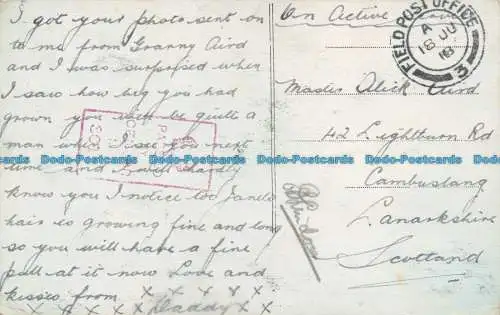 I got your photo sent on
to me from Granny Aird
and I was surprised when
I saw how big you had
grown you will be quite a
man when I see you next
time and I will hardly
know you I notice too Janets
hair is growing fine and long
so you will have a fine
pull at it now Love and
kisses from x x x x x
x x Daddy x x
On Active
FIELD POST OFFICE
A
18 JU
18
3
Master Alick Aird
42 Lightburn Rd
Cambuslang
Lanarkshire
Scotland
Dodo-Postcards Dodo-Postcards Dodo-Postcards Dodo-Postcards Dodo-Postcards